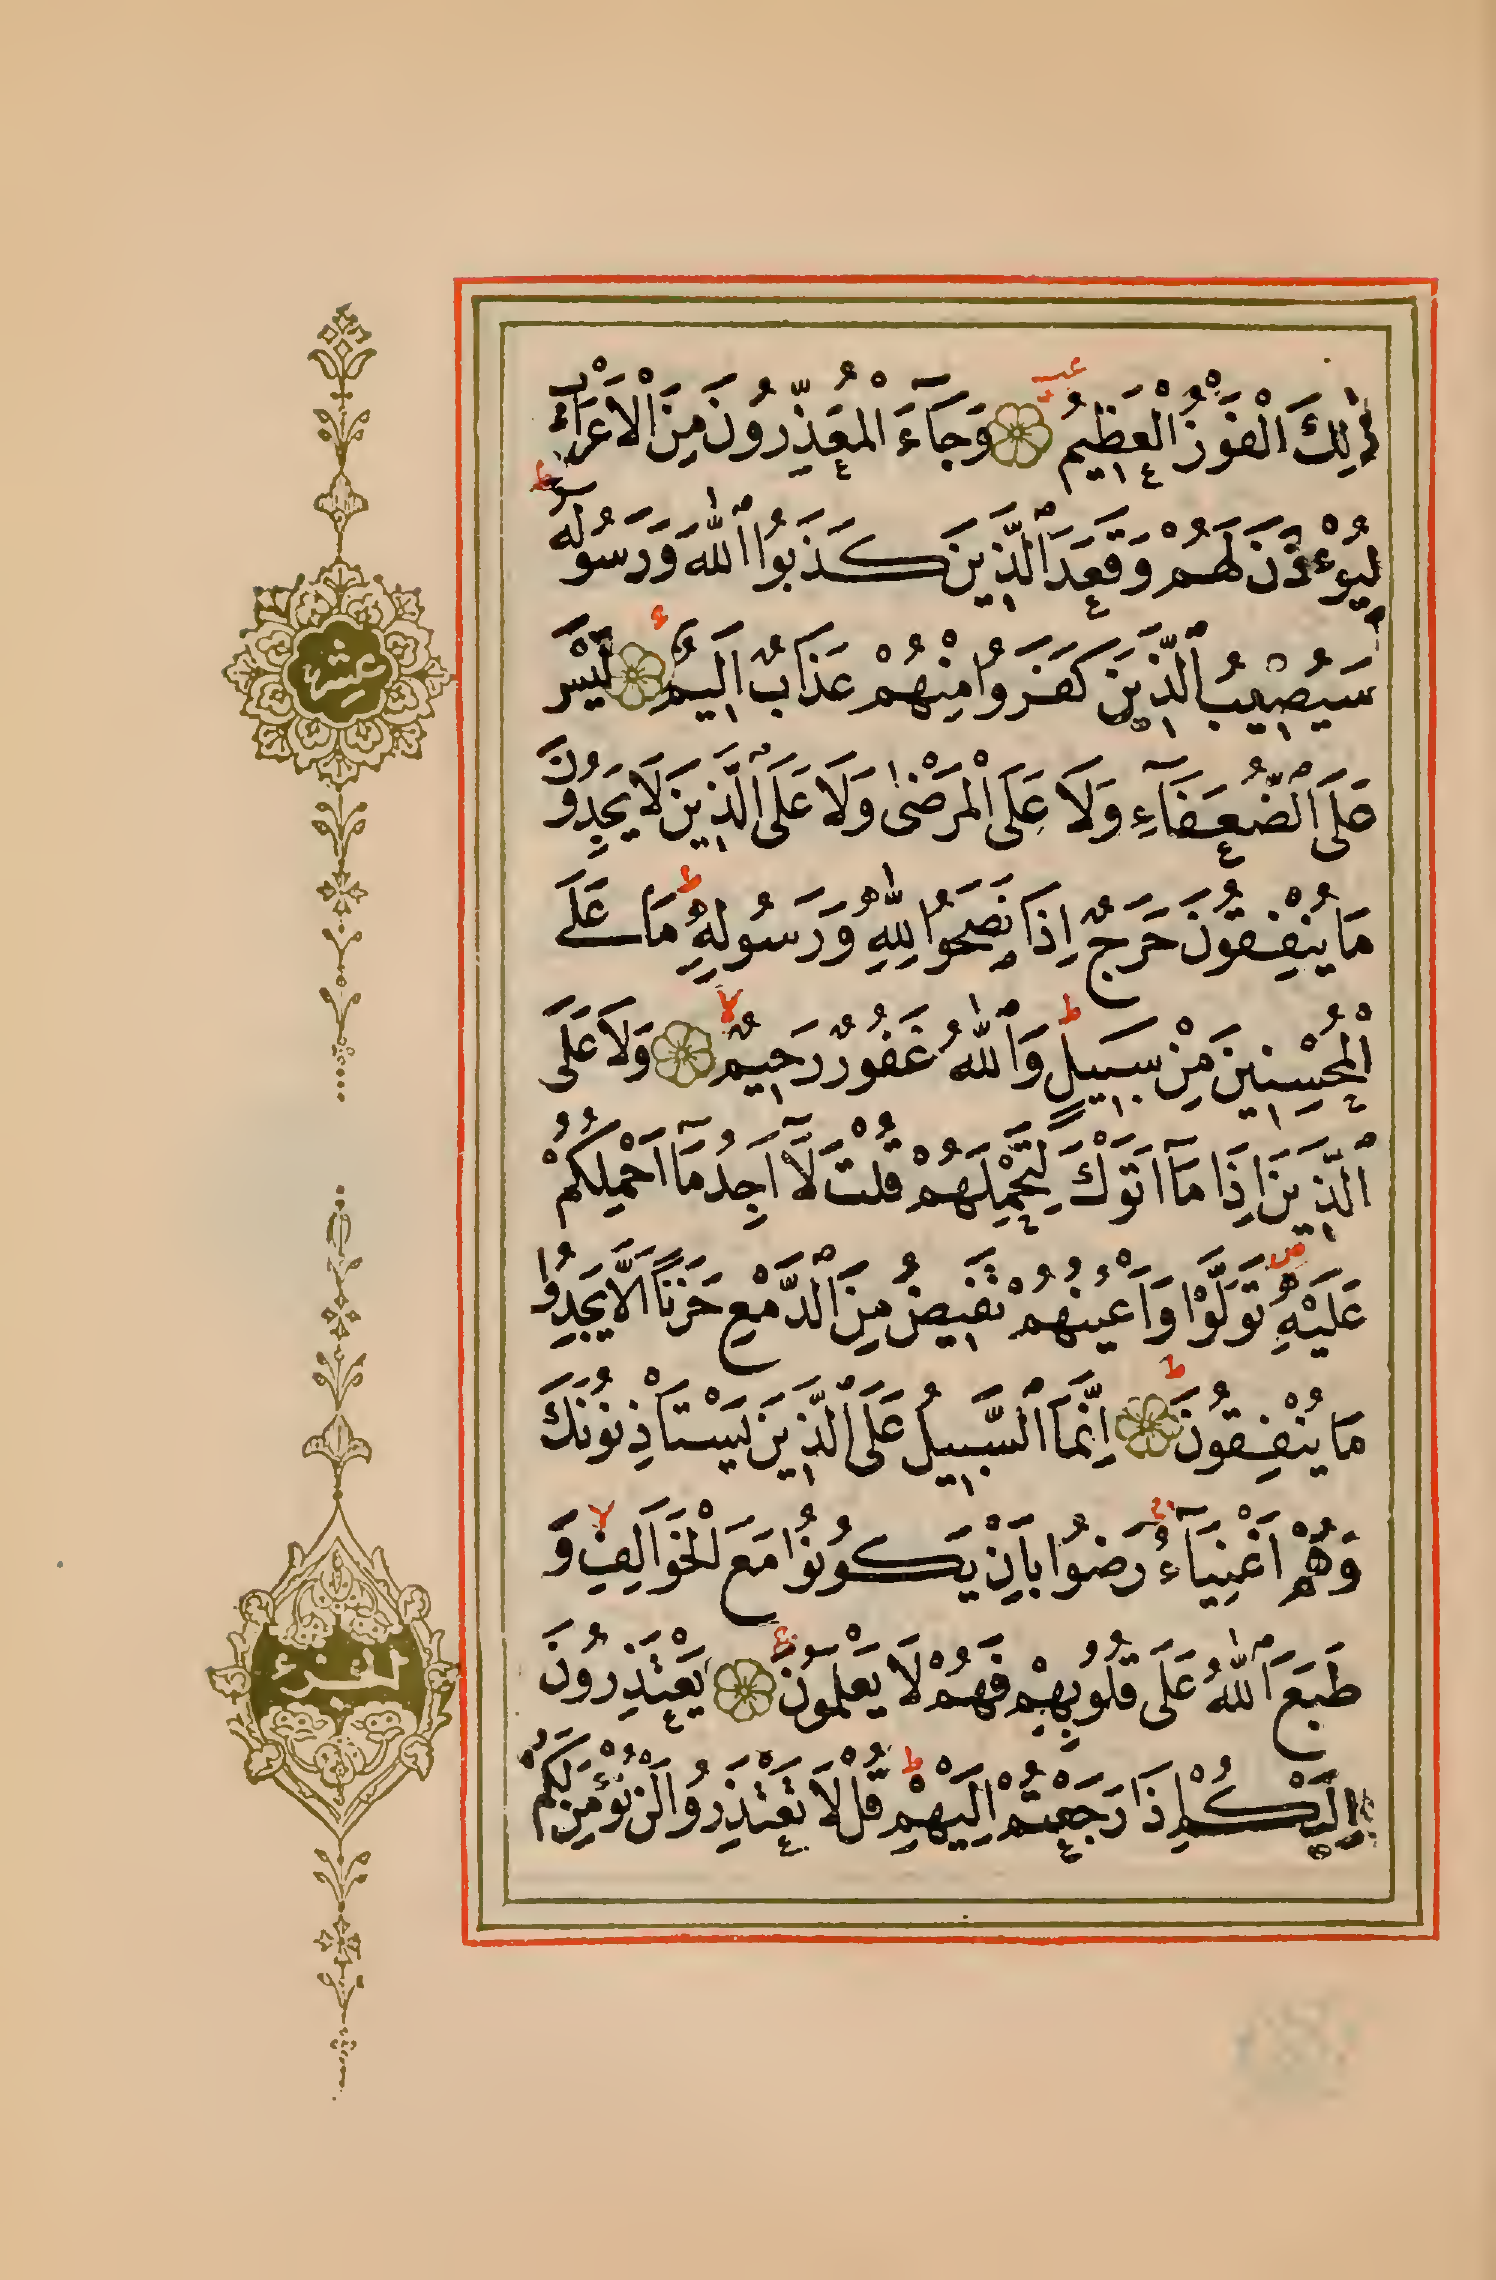 ذٰلِكَ الْفَوْزُ الْعَظِيمُ وَجَآءَ الْمُعَذِّرُونَ مِنَ الْاَعْرَابِ
لِيُؤْذَنَ لَهُمْ وَقَعَدَ الَّذِينَ كَذَبُوا اللّٰهَ وَرَسُولَهُ
سَيُصِيبُ الَّذِينَ كَفَرُوا مِنْهُمْ عَذَابٌ اَلِيمٌ لَيْسَ
عَلَى الضُّعَفَآءِ وَلَا عَلَى الْمَرْضٰى وَلَا عَلَى الَّذِينَ لَا يَجِدُونَ
مَا يُنْفِقُونَ حَرَجٌ اِذَا نَصَحُوا لِلّٰهِ وَرَسُولِهِ مَا عَلَى
الْمُحْسِنِينَ مِنْ سَبِيلٍ وَاللّٰهُ غَفُورٌ رَحِيمٌ وَلَا عَلَى
الَّذِينَ اِذَا مَآ اَتَوْكَ لِتَحْمِلَهُمْ قُلْتَ لَآ اَجِدُ مَآ اَحْمِلُكُمْ
عَلَيْهِ تَوَلَّوْا وَاَعْيُنُهُمْ تَفِيضُ مِنَ الدَّمْعِ حَزَنًا اَلَّا يَجِدُوا
مَا يُنْفِقُونَ اِنَّمَا السَّبِيلُ عَلَى الَّذِينَ يَسْتَاْذِنُونَكَ
وَهُمْ اَغْنِيَآءُ رَضُوا بِاَنْ يَكُونُوا مَعَ الْخَوَالِفِ وَ
طَبَعَ اللّٰهُ عَلَى قُلُوبِهِمْ فَهُمْ لَا يَعْلَمُونَ يَعْتَذِرُونَ
اِلَيْكُمْ اِذَا رَجَعْتُمْ اِلَيْهِمْ قُلْ لَا تَعْتَذِرُوا لَنْ نُؤْمِنَ لَكُمْ
عشر